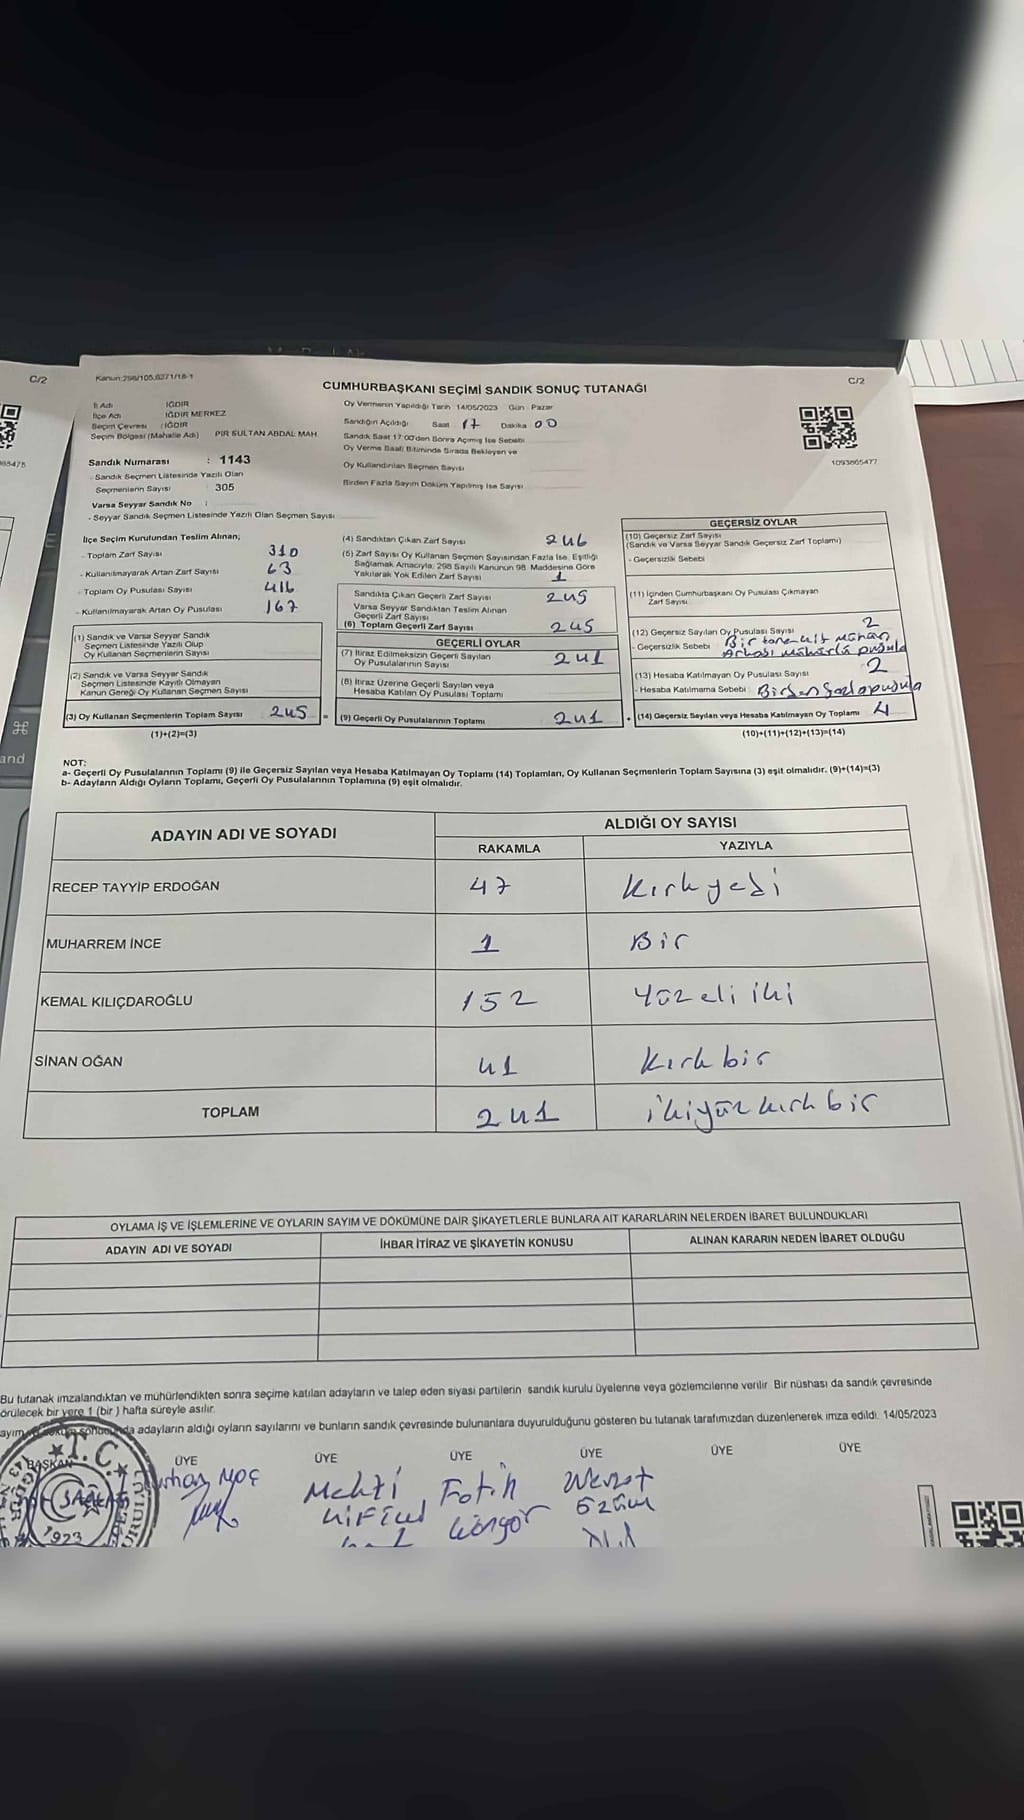 C/2
Kanun:298/105,6271/18-1
CUMHURBAŞKANI SEÇİMİ SANDIK SONUÇ TUTANAĞI
C/2
İl Adı : IĞDIR
İlçe Adı : IĞDIR MERKEZ
Seçim Çevresi : IĞDIR
Seçim Bölgesi (Mahalle Adı) : PİR SULTAN ABDAL MAH.
Sandık Numarası : 1143
- Sandık Seçmen Listesinde Yazılı Olan
Seçmenlerin Sayısı : 305
Varsa Seyyar Sandık No :
- Seyyar Sandık Seçmen Listesinde Yazılı Olan Seçmen Sayısı
Oy Vermenin Yapıldığı Tarih 14/05/2023 Gün : Pazar
Sandığın Açıldığı Saat 17 Dakika 00
Sandık Saat 17:00'den Sonra Açımış İse Sebebi
Oy Verme Saati Bitiminde Sırada Bekleyen ve
Oy Kullandırılan Seçmen Sayısı
Birden Fazla Sayım Döküm Yapılmış İse Sayısı
1093865477
İlçe Seçim Kurulundan Teslim Alınan;
- Toplam Zarf Sayısı 310
- Kullanılmayarak Artan Zarf Sayısı 63
- Toplam Oy Pusulası Sayısı 416
- Kullanılmayarak Artan Oy Pusulası 167
(1) Sandık ve Varsa Seyyar Sandık
Seçmen Listesinde Yazılı Olup
Oy Kullanan Seçmenlerin Sayısı
(2) Sandık ve Varsa Seyyar Sandık
Seçmen Listesinde Kayıtlı Olmayan
Kanun Gereği Oy Kullanan Seçmen Sayısı
(3) Oy Kullanan Seçmenlerin Toplam Sayısı 245
(1)+(2)=(3)
(4) Sandıktan Çıkan Zarf Sayısı 246
(5) Zarf Sayısı Oy Kullanan Seçmen Sayısından Fazla İse, Eşitliği
Sağlamak Amacıyla, 298 Sayılı Kanunun 98. Maddesine Göre
Yakılarak Yok Edilen Zarf Sayısı 1
Sandıkta Çıkan Geçerli Zarf Sayısı 245
Varsa Seyyar Sandıktan Teslim Alınan
Geçerli Zarf Sayısı
(6) Toplam Geçerli Zarf Sayısı 245
GEÇERLİ OYLAR
(7) İtiraz Edilmeksizin Geçerli Sayılan
Oy Pusulalarının Sayısı 241
(8) İtiraz Üzerine Geçerli Sayılan veya
Hesaba Katılan Oy Pusulası Toplamı
= (9) Geçerli Oy Pusulalarının Toplamı 241
GEÇERSİZ OYLAR
(10) Geçersiz Zarf Sayısı
(Sandık ve Varsa Seyyar Sandık Geçersiz Zarf Toplamı)
- Geçersizlik Sebebi
(11) İçinden Cumhurbaşkanı Oy Pusulası Çıkmayan
Zarf Sayısı
(12) Geçersiz Sayılan Oy Pusulası Sayısı 2
- Geçersizlik Sebebi Bir tane mühür
Arkası mühürlü pusula
(13) Hesaba Katılmayan Oy Pusulası Sayısı 2
- Hesaba Katılmama Sebebi : Birden fazla pusula
+ (14) Geçersiz Sayılan veya Hesaba Katılmayan Oy Toplamı 4
(10)+(11)+(12)+(13)=(14)
NOT;
a- Geçerli Oy Pusulalarının Toplamı (9) ile Geçersiz Sayılan veya Hesaba Katılmayan Oy Toplamı (14) Toplamları, Oy Kullanan Seçmenlerin Toplam Sayısına (3) eşit olmalıdır. (9)+(14)=(3)
b- Adayların Aldığı Oyların Toplamı, Geçerli Oy Pusulalarının Toplamına (9) eşit olmalıdır.
ADAYIN ADI VE SOYADI
ALDIĞI OY SAYISI
RAKAMLA YAZIYLA
RECEP TAYYİP ERDOĞAN 47 Kırkyedi
MUHARREM İNCE 1 Bir
KEMAL KILIÇDAROĞLU 152 Yüz eli iki
SİNAN OĞAN 41 Kırk bir
TOPLAM 241 ikiyüz kırk bir
OYLAMA İŞ VE İŞLEMLERİNE VE OYLARIN SAYIM VE DÖKÜMÜNE DAİR ŞİKAYETLERLE BUNLARA AİT KARARLARIN NELERDEN İBARET BULUNDUKLARI
ADAYIN ADI VE SOYADI İHBAR İTİRAZ VE ŞİKAYETİN KONUSU ALINAN KARARIN NEDEN İBARET OLDUĞU
Bu tutanak imzalandıktan ve mühürlendikten sonra seçime katılan adayların ve talep eden siyasi partilerin sandık kurulu üyelerine veya gözlemcilerine verilir. Bir nüshası da sandık çevresinde
örülecek bir yere 1 (bir ) hafta süreyle asılır.
adayların aldığı oyların sayılarını ve bunların sandık çevresinde bulunanlara duyurulduğunu gösteren bu tutanak tarafımızdan düzenlenerek imza edildi. 14/05/2023
BAŞKAN ÜYE ÜYE ÜYE ÜYE ÜYE ÜYE
T.C.
1923
Mehti Fatih
Güngör